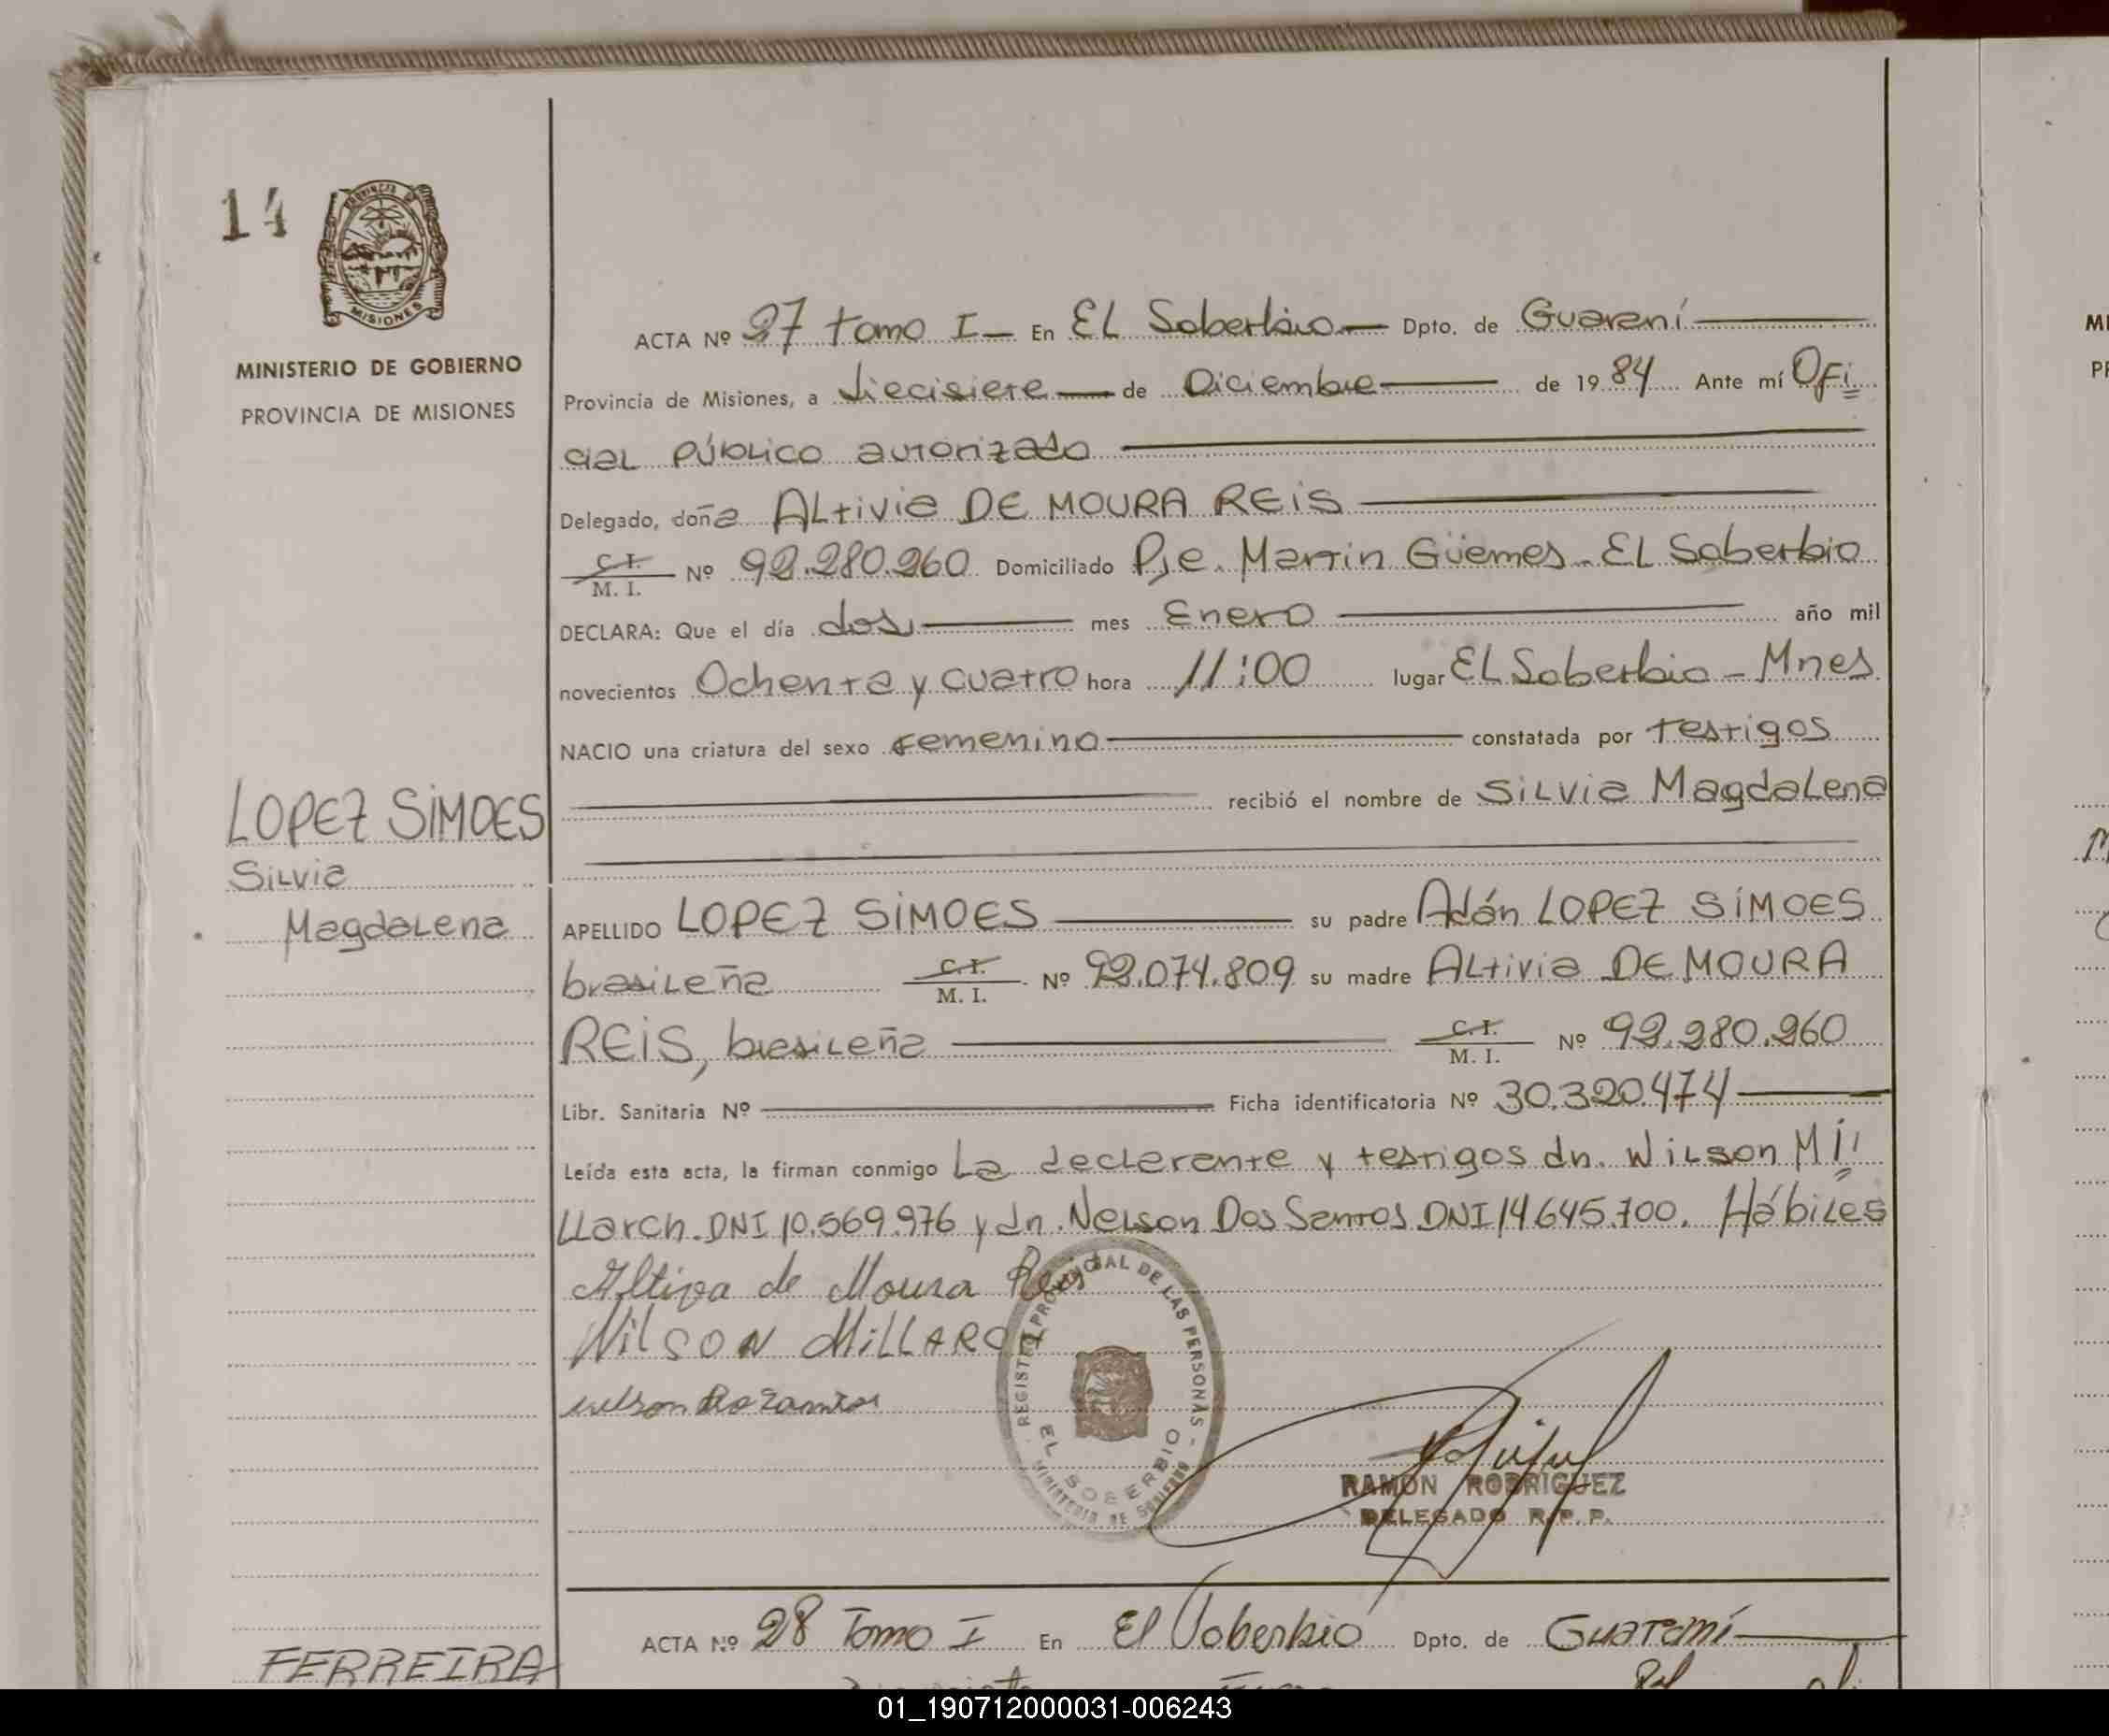 14
MISIONES
MINISTERIO DE GOBIERNO
PROVINCIA DE MISIONES
ACTA Nº 27 tomo I – En EL Soberbio – Dpto. de Guaraní
Provincia de Misiones, a diecisiete de Diciembre de 1984 Ante mí Ofi
cial Público autorizado
Delegado, doña ALtivia DE MOURA REiS
C. I.
M. I. Nº 92.280.260 Domiciliado Pje. Martin Güemes - EL Soberbio
DECLARA: Que el día dos mes Enero año mil
novecientos Ochenta y cuatro hora 11:00 lugar EL Soberbio - Mnes
NACIO una criatura del sexo femenino constatada por testigos
recibió el nombre de SiLvia MagdaLena
LOPEZ SiMOES
SiLvia
MagdaLena
APELLIDO LOPEZ SiMOES su padre Adán LOPEZ SiMOES
brasiLeña C. I. M. I. Nº 92.074.809 su madre ALtivia DE MOURA
REiS, brasiLeña C. I. M. I. Nº 92.280.260
Libr. Sanitaria Nº Ficha identificatoria Nº 30.320.474
Leída esta acta, la firman conmigo La declarante y testigos dn. WiLson Mi
LLarch. DNI 10.569.976 y dn. NeLson Dos Santos DNI 14.645.700. HábiLes
Altiva de Moura Reis
WiLSON MiLLARCH
REGISTRO PROVINCIAL DE LAS PERSONAS -
EL SOBERBIO
MINISTERIO DE GOBIERNO
RAMON RODRIGUEZ
DELEGADO R. P. P.
FERREIRA
ACTA Nº 28 Tomo I En El Soberbio Dpto. de Guaraní
01_190712000031-006243